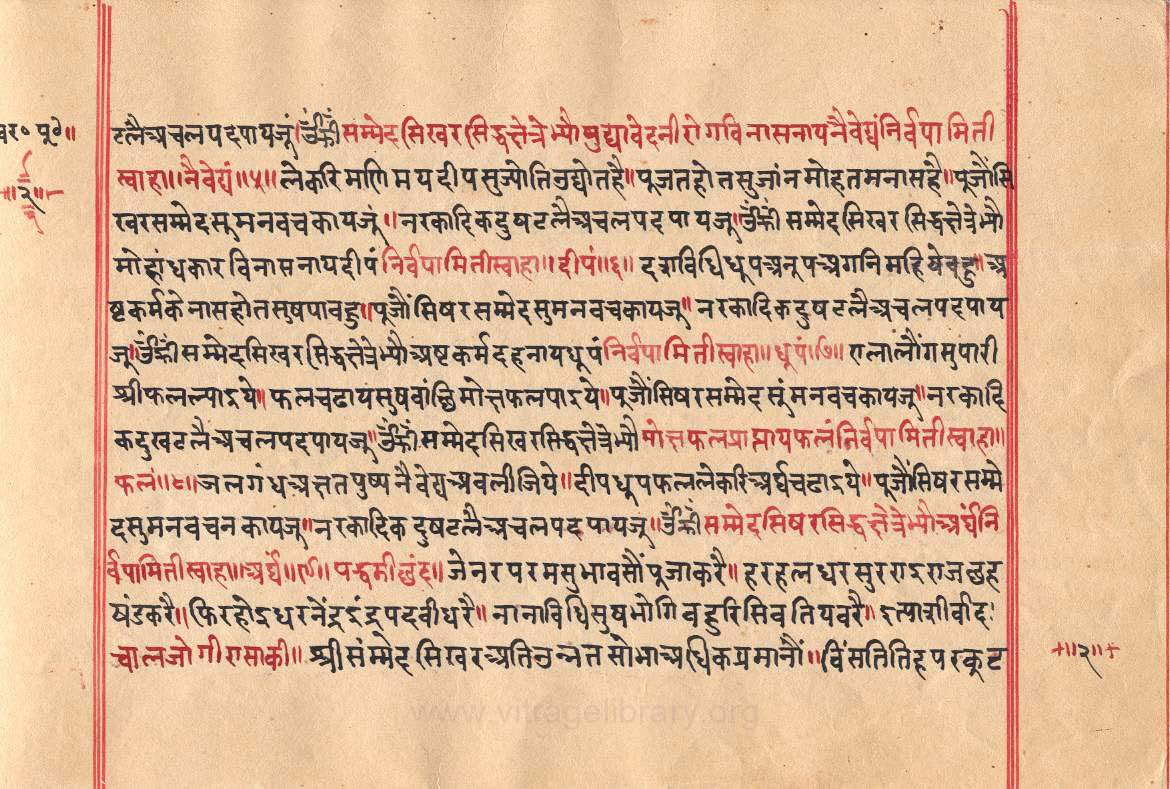 टलैअचलपदपायजूं॥ॐह्रीं सम्मेदसिखरसिद्धक्षेत्रेभ्यौ क्षुद्यावेदनीरोगविनासनायनैवेद्यंनिर्वपामिती
स्वाहा॥नैवेद्यं॥५॥लेकरिमणिमयदीपसुज्योतिउद्योतहै॥पूजतहोतसुजांनमोहतमनासहै॥पूजौंसि
खरसम्मेदसुमनवचकायजूं॥नरकादिकदुषटलैअचलपदपायजू॥ॐह्रीं सम्मेदसिखरसिद्धक्षेत्रेभ्यौ
मोहांधकारविनासनायदीपंनिर्वपामितीस्वाहा॥दीपं॥६॥दशविधिधूपअनूपअगनिमहि॥अ
ष्टकर्मकेनासहोतसुषपावहु॥पूजौंसिषरसम्मेदसुमनवचकायजू॥नरकादिकदुषटलैअचलपदपाय
जू॥ॐह्रीं सम्मेदसिखरसिद्धक्षेत्रेभ्यौअष्टकर्मदहनायधूपंनिर्वपामितीस्वाहा॥धूपं॥७॥एलालौंगसुपारी
श्रीफलल्याऽये॥फलचढायसुषवांछिमोक्षफलपाऽये॥पूजौंसिषरसम्मेदसुंमनवचकायजू॥नरकादि
कदुखटलैअचलपदपायजू॥ॐह्रीं सम्मेदसिखरसिद्धक्षेत्रेभ्यौमोक्षफलप्राप्तायफलंनिर्वपामितीस्वाहा॥
फलं॥८॥जलगंधअक्षतपुष्पनैवेद्यअवलीजिये॥दीपधूपफललेकरिअर्घचढाऽये॥पूजौंसिषरसम्मे
दसुमनवचनकायजू॥नरकादिकदुषटलैअचलपदपायजू॥ॐह्रीं सम्मेदसिषरसिद्धक्षेत्रेभ्यौअर्घंनि
र्वपामितीस्वाहा॥अर्घं॥९॥पद्धमीछंद॥जेनरपरमसुभावसौंपूजाकरै॥हरहलधरसुरराऽराजछह
षंडकरै॥फिरहोऽधरनेंद्रऽंद्रपदवीधरै॥नानाविधिसुषभोगिबहुरिसिवतियवरै॥ऽत्याशीर्वादः
चालजोगीरासाकी॥श्रीसंम्मेदसिखरअतिउन्नतसोभाअधिकप्रमानौं॥विंसतितिहपरकूट
॥२॥
॥२॥
www.vitragelibrary.org